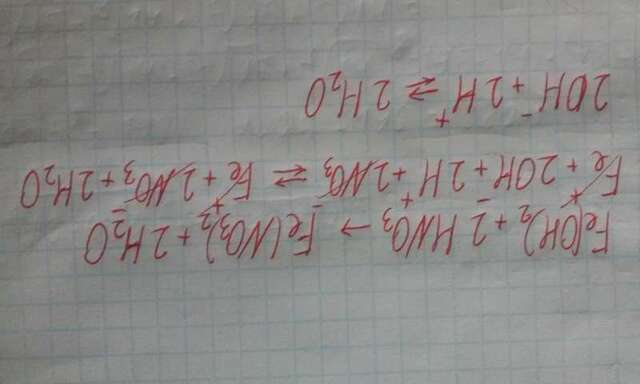 Fe(OH)₂ + 2HNO₃ → Fe(NO₃)₂ + 2H₂O
Fe⁺ + 2OH⁻ + 2H⁺ + 2NO₃⁻ ⇌ Fe⁺ + 2NO₃⁻ + 2H₂O
2OH⁻ + 2H⁺ ⇌ 2H₂O